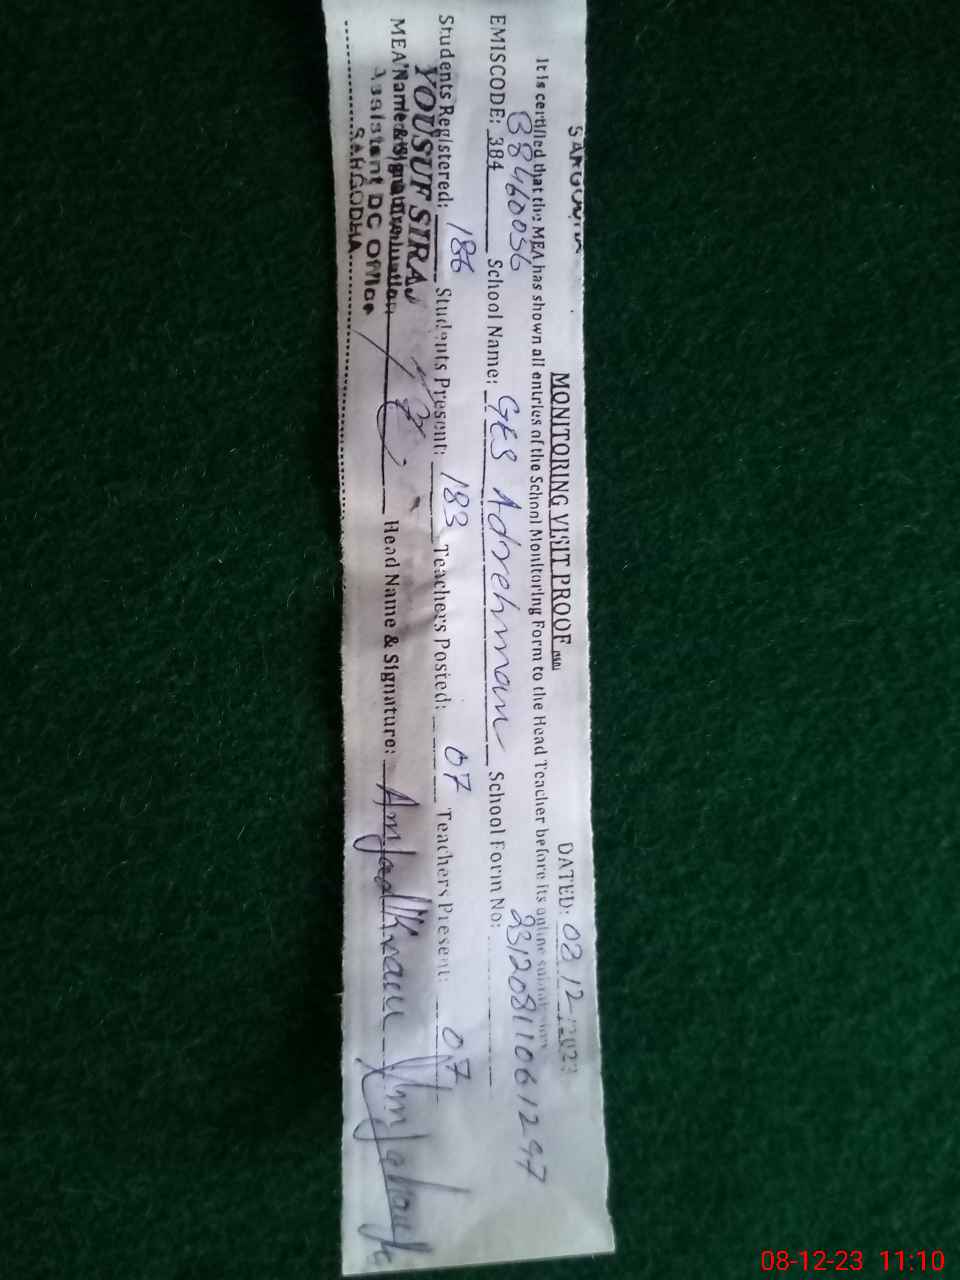 SARGODHA
MONITORING VISIT PROOF
DATED: 08 12 2023
It is certified that the MEA has shown all entries of the School Monitoring Form to the Head Teacher before its online
38460056 23120811061297
EMISCODE: 384 School Name: GES Adrehman School Form No:
Students Registered: 186 Students Present: 183 Teachers Posted: 07 Teachers Present: 07
YOUSUF SIRAJ
MEA Name & Signature: Head Name & Signature: Amjad
Assistant DC Office
SARGODHA
08-12-23 11:10